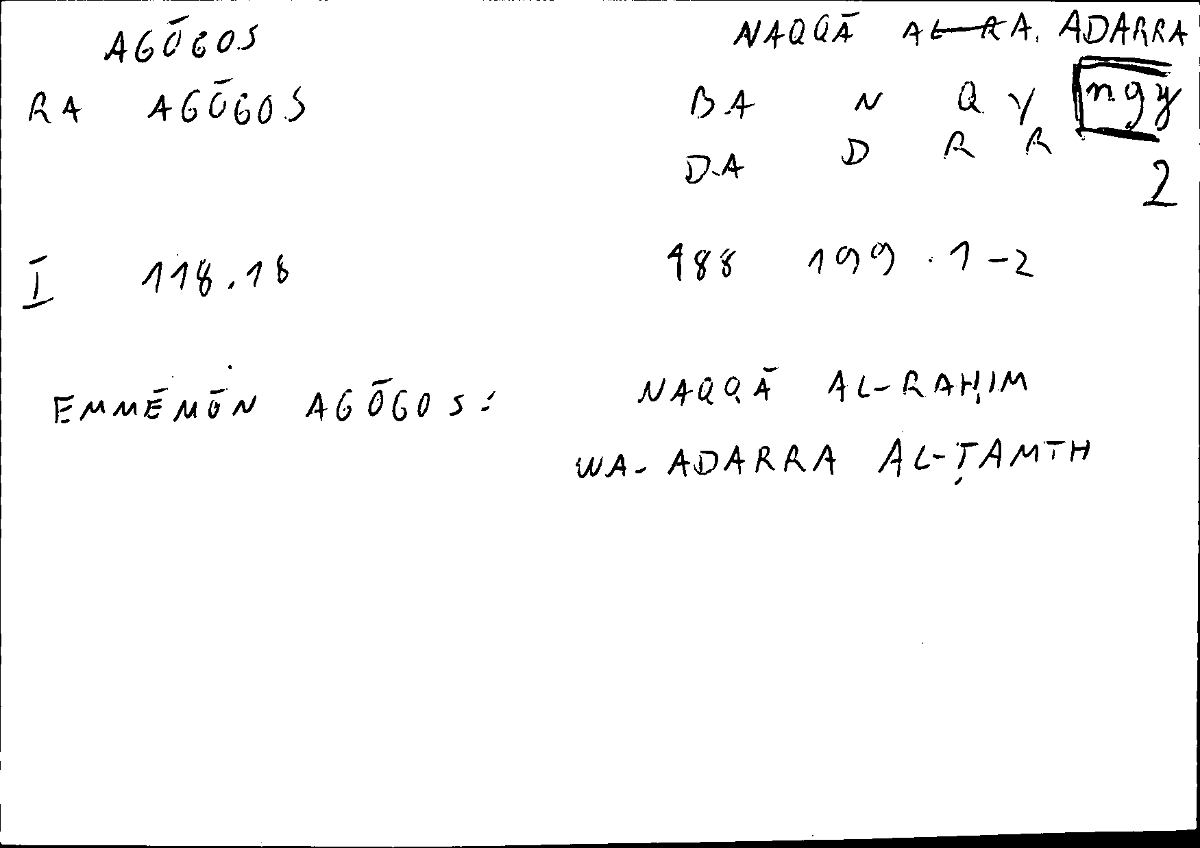 AGŌGOS NAQQĀ AL-RA. ADARRA
RA AGŌGOS BA N Q Y ngy
DA D R R 2
I 118.18 488 199.1-2
EMMĒMŌN AGŌGOS: NAQQĀ AL-RAḤIM
WA-ADARRA AL-ṬAMTH